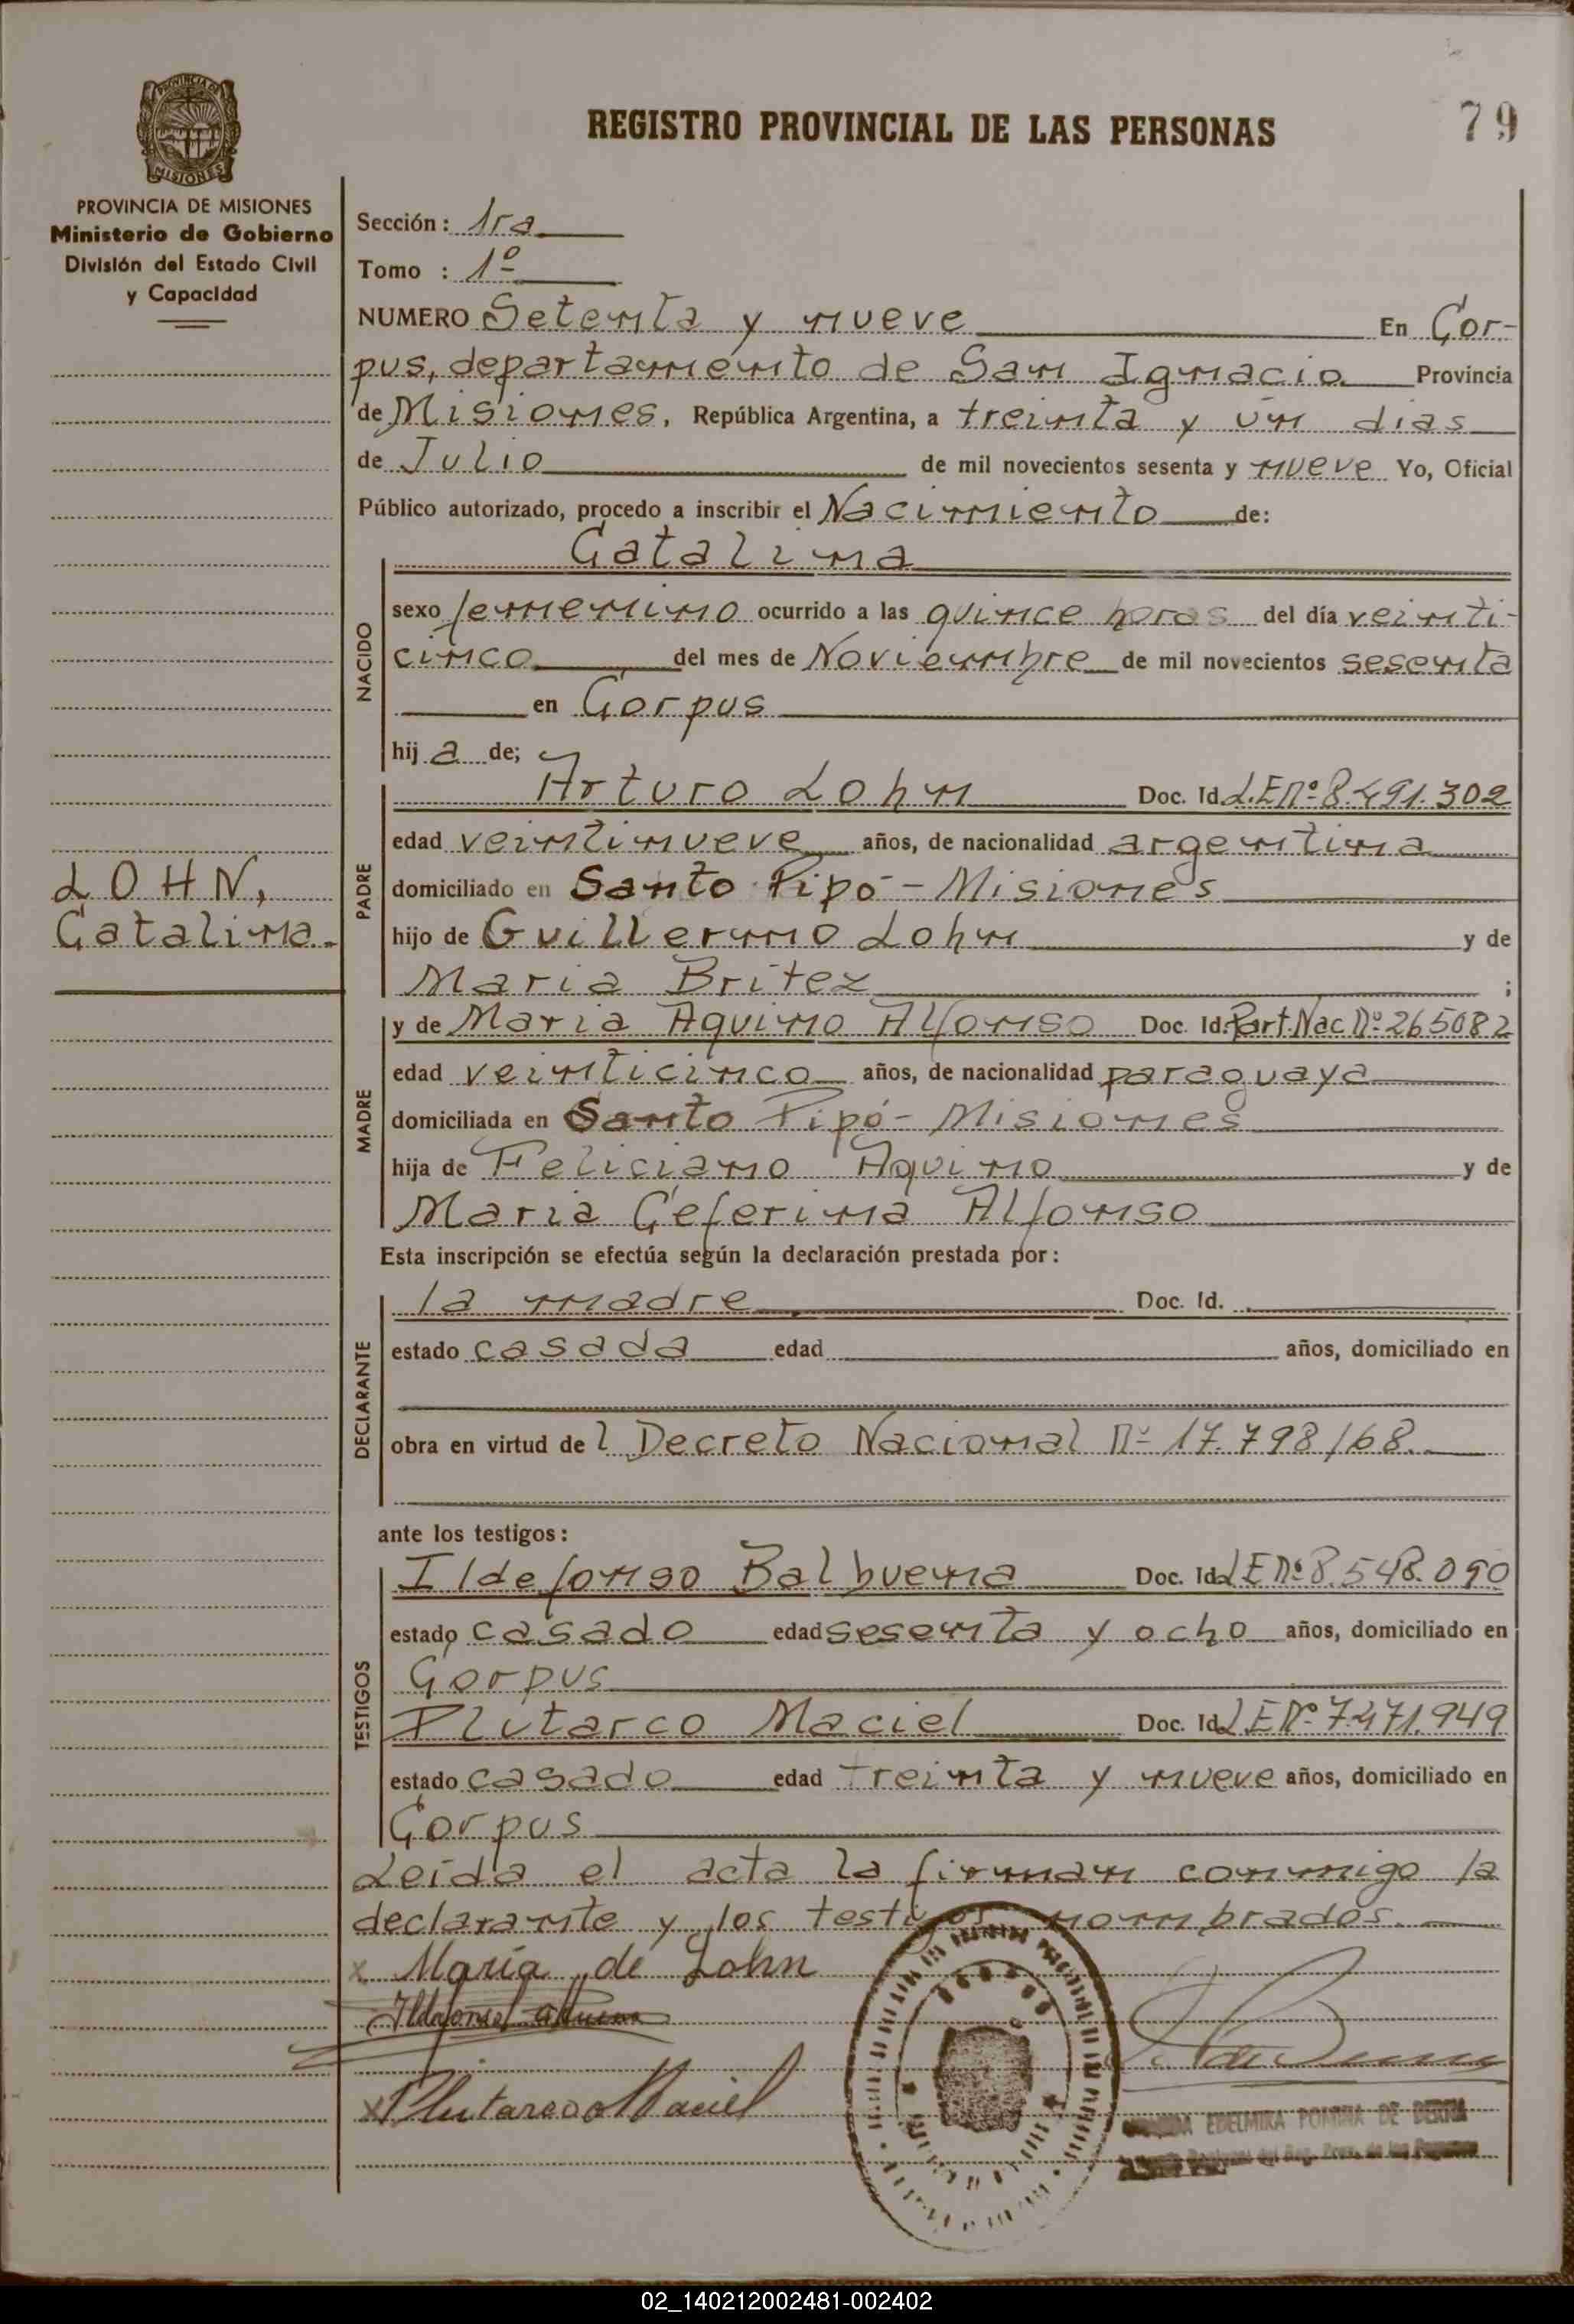 REGISTRO PROVINCIAL DE LAS PERSONAS
79
PROVINCIA DE
MISIONES
PROVINCIA DE MISIONES
Ministerio de Gobierno
División del Estado Civil
y Capacidad
LOHN,
Catalina.
Sección: 1ra
Tomo : 1º
NUMERO Setenta y nueve En Cor-
pus, departamento de San Ignacio Provincia
de Misiones, República Argentina, a treinta y un días
de Julio de mil novecientos sesenta y nueve Yo, Oficial
Público autorizado, procedo a inscribir el Nacimiento de:
NACIDO
Catalina
sexo femenino ocurrido a las quince horas del día veinti-
cinco del mes de Noviembre de mil novecientos sesenta
en Corpus
hij a de;
PADRE
Arturo Lohn Doc. Id. L.E Nº 8.491.302
edad veintinueve años, de nacionalidad argentina
domiciliado en Santo Pipó - Misiones
hijo de Guillermo Lohn y de
Maria Britez ;
MADRE
y de Maria Aquino Alfonso Doc. Id. Part.Nac.Nº 265082
edad veinticinco años, de nacionalidad paraguaya
domiciliada en Santo Pipó - Misiones
hija de Feliciano Aquino y de
Maria Ceferina Alfonso
Esta inscripción se efectúa según la declaración prestada por:
DECLARANTE
la madre Doc. Id.
estado casada edad años, domiciliado en
obra en virtud de l Decreto Nacional Nº 17.798/68.
ante los testigos:
TESTIGOS
Ildefonso Balbuena Doc. Id. LE Nº 8.548.090
estado casado edad sesenta y ocho años, domiciliado en
Corpus
Plutarco Maciel Doc. Id. LE Nº 7.471.949
estado casado edad treinta y nueve años, domiciliado en
Corpus
Leída el acta la firman conmigo la
declarante y los testigos nombrados.
x María de Lohn
x Plutarco Maciel
EDELMIRA POMINA DE
del Reg. Prov. de las Personas
02_140212002481-002402